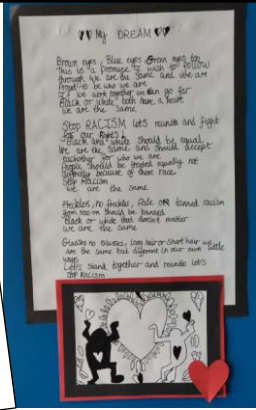 My DREAM
Brown eyes, Blue eyes Green eyes too
This is a promise I wish to follow
through we are the same and we are
Proud to be who we are
If we work together we can go far
Black or white both have a heart
We are the same
Stop RACISM lets reunite and fight
for our rights!
Black and white should be equal
We are the same and should accept
eachother for who we are
People should be treated equally not
differently because of there race
Stop Racism
we are the same
Freckles, no freckles, Pale or tanned racism
from now on should be banned
Black or white that doesn't matter
we are the same
Glasses no Glasses, long hair or short hair we
are the same but different in our own little
ways
Let's stand together and reunite let's
stop Racism